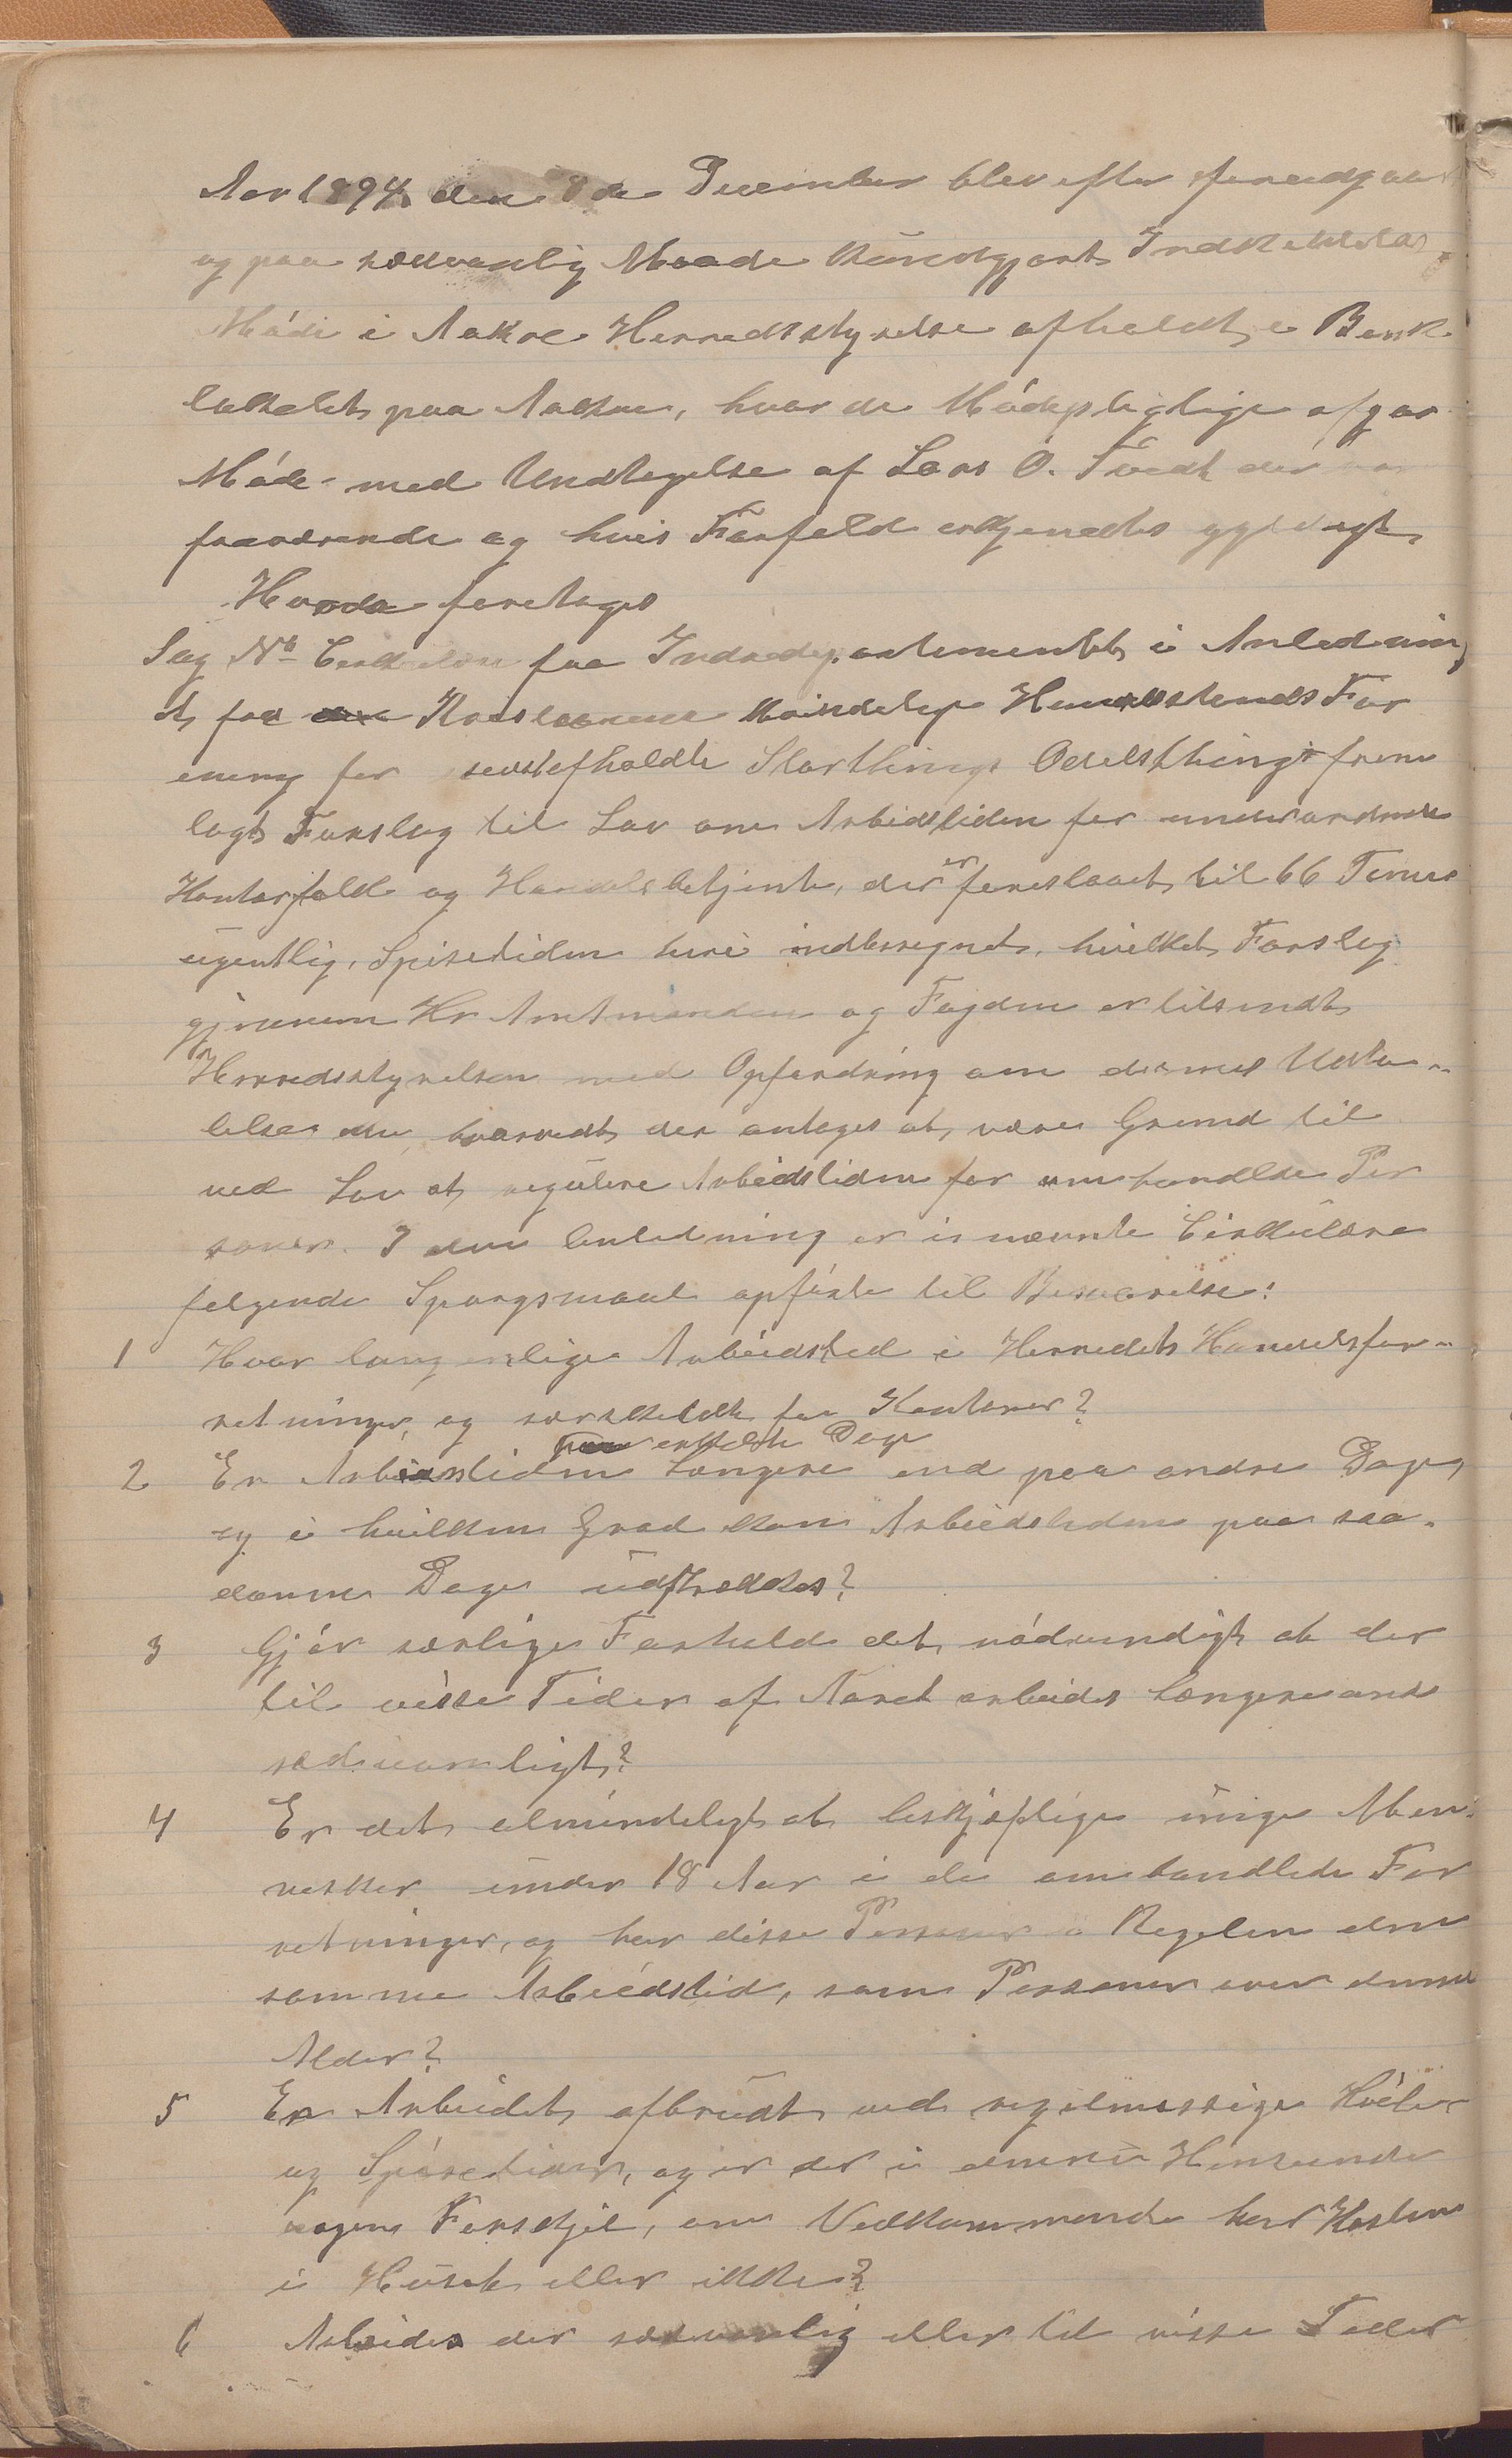 Aar 1894 den 8de December blev efter foreudgaaet
og paa sædvanlig Maade kundgjort Indkaldelse
Møde i Aakre Herredsstyrelse afholdt i Bank
lokalet paa Aakre, hvor de Mødepligtige afgav
Møde med Undtagelse af Lars O. Tvedt der var
fraværende og hvis Forfald erkjendtes gyldigt,
Hvorda foretages
Sag No Cirkulære fra Indredepartementet i Anledning
et fra Kristianna kvindelige Handelsstands For
ening for sidstafholdte Storthings Odelsthing frem
lagt Forslag til Lov om Arbidstiden for underordnede
Kontorfolk og Handelsbetjente, der er foreslaaet til 66 Timer
ugentlig, Spisetiden heri indberegnet, hvilket Forslag
gjennem Hr Amtmanden og Fogden er tilsendt
Herredsstyrelsen med Opfordring om dennes Udta-
lelse om, hvorvidt der antages at være Grund til
ved Lov at regulere Arbeidstiden for omhandlede Per
soner. I den Anledning er i nævnte Cirkulære
følgende Spørgsmaal opførte til Besvarelse:
1 Hvor lang er Arbeidstid i Herredets Handelsfor-
retninger, og særskildt for Kontorer?
paa enkelte Dage
2 Er Arbeidstiden længere end paa andre Dage,
og i hvilken Grad kan Arbeidstiden paa saa-
danne Dage udstrækkes?
3 Gjør særlige Forhold det nødvendigt at der
til visse Tider af Aaret arbeides længere end
sædvanligt?
4 Er det almindeligt at beskjæftige unge Men-
nesker under 18 Aar i de omhandlede For
retninger, og har disse Personer i Regelen den
samme Arbeidstid, som Personer over denne
Alder?
5 Er Arbeidet afbrudt ved regelmæssige Hvile
og Spisetider, og er der i denne Henseende
nogen Forskjel, om Vedkommende har Kosten
i Huset eller ikke?
6 Arbeides der sædvanlig eller til visse Tider